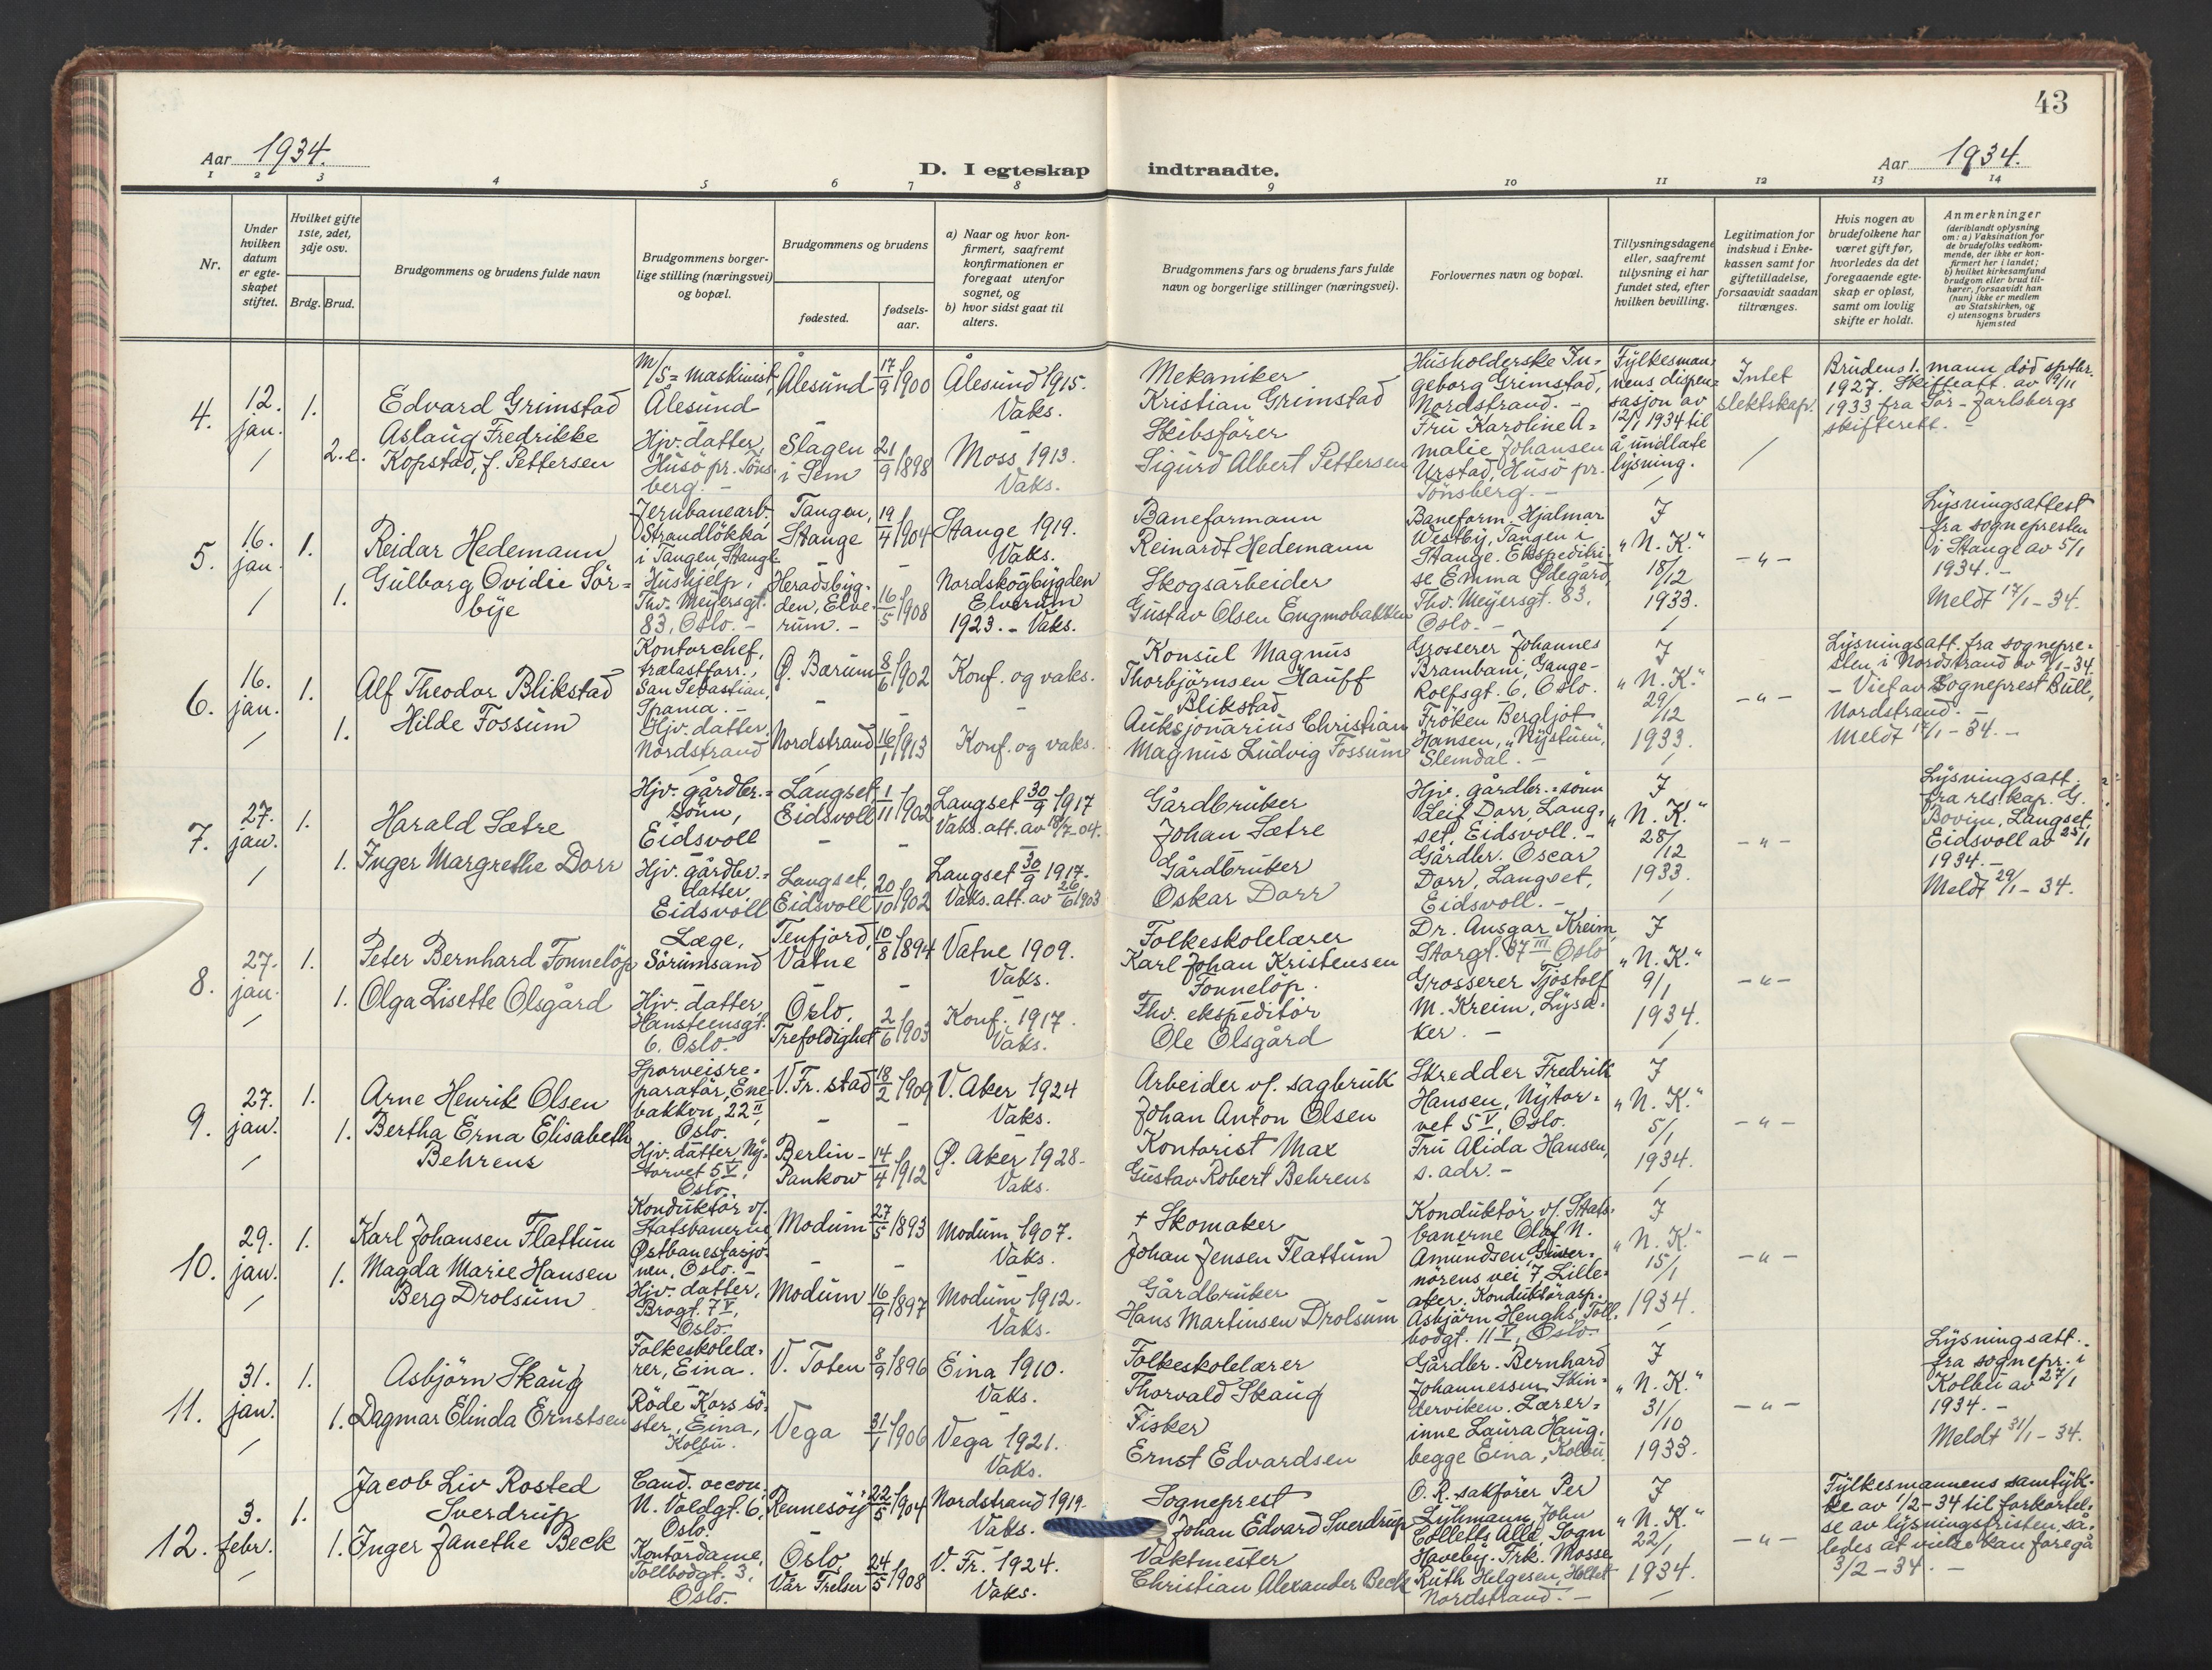 43
Aar 1934.
D. I egteskap indtraadte.
Aar 1934.
1 2 3 4 5 6 7 8 9 10 11 12 13 14
Nr.
Under hvilken datum er egte-skapet stiftet.
Hvilket gifte 1ste, 2det, 3dje osv.
Brdg. Brud.
Brudgommens og brudens fulde navn
Brudgommens borger-lige stilling (næringsvei) og bopæl.
Brudgommens og brudens
fødested.
fødsels-aar.
a) Naar og hvor kon-firmert, saafremt konfirmationen er foregaat utenfor sognet, og
b) hvor sidst gaat til alters.
Brudgommens fars og brudens fars fulde navn og borgerlige stillinger (næringsvei).
Forlovernes navn og bopæl.
Tillysningsdagene eller, saafremt tillysning ei har fundet sted, efter hvilken bevilling.
Legitimation for indskud i Enke-kassen samt for giftetilladelse, forsaavidt saadan tiltrænges.
Hvis nogen av brudefolkene har været gift før, hvorledes da det foregaaende egte-skap er opløst, samt om lovlig skifte er holdt.
Anmerkninger (deriblandt oplysning om: a) Vaksination for de brudefolks vedkom-mende, der ikke er kon-firmert her i landet; b) hvilket kirkesamfund brudgom eller brud til-hører, forsaavidt han (hun) ikke er medlem av Statskirken, og c) utensogns bruders hjemsted
4.
12. jan.
1.
2. e.
Edvard Grimstad
Aslaug Fredrikke
Kopstad, f. Pettersen
M/S = maskinist,
Ålesund
Hjv. datter,
Husö pr. Töns-
berg. -
Ålesund
17/9 1900
Slagen
i Sem
21/9 1898
Ålesund 1915.
Vaks.
Moss 1913.
Vaks.
Mekaniker
Kristian Grimstad
Skibsförer
Sigurd Albert Pettersen
Husholderske In-
geborg Grimstad,
Nordstrand. -
Fru Karoline A-
malie Johansen
Urstad, Husö pr.
Tönsberg. -
Fylkesman-
nens dispen-
sasjon av
12/1 1934 til
å undlate
lysning.
Intet
slektskap.
Brudens 1. mann död sptbr.
1927. Skifteatt. av 9/11
1933 fra Sör-Jarlsbergs
skifterett. -
5.
16. jan.
1.
1.
Reidar Hedemann
Gulborg Ovidie Sör-
bye
Jernbanearb.
Strandlökka
i Tangen, Stange
Hushjelp,
Thv. Meyersgt.
83, Oslo. -
Tangen,
Stange
19/4 1904
Heradsbyg-
den, Elve-
rum. -
16/5 1908
Stange 1919.
Vaks.
Nordskogbygden
Elverum
1923. - Vaks.
Baneformann
Reinardt Hedemann
Skogsarbeider
Gustav Olsen Engmobakken
Baneform. Hjalmar
Westby, Tangen i
Stange. Ekspeditri-
se Emma Ödegård,
Thv. Meyersgt. 83,
Oslo. -
I
"N. K."
18/12
1933.
- " -
Lysningsattest
fra sognepresten
i Stange av 5/1
1934. -
Meldt 17/1 - 34.
6.
16. jan.
1.
1.
Alf Theodor Blikstad
Hilde Fossum
Kontorchef,
trælastforr.,
San Sebastian,
Spania. -
Hjv. datter.
Nordstrand
Ö. Bærum
8/6 1902
Nordstrand
16/1 1913
Konf. og vaks.
Konf. og vaks.
Konsul Magnus
Thorbjörnsen Hauff
Blikstad
Auksjonarius Christian
Magnus Ludvig Fossum
Grosserer Johannes
Brambani, Gange-
Rolfsgt. 6, Oslo.
Fröken Bergljot
Hansen, "Nystuen",
Slemdal. -
I
"N. K."
29/12
1933.
- " -
Lysningsatt. fra sognepre-
sten i Nordstrand av 9/1-34.
- Viet av Sogneprest Bull,
Nordstrand. -
Meldt 17/1 - 34. -
7.
27. jan.
1.
1.
Harald Sætre
Inger Margrethe Dorr
Hjv. gårdbr.=
sönn,
Eidsvoll
Hjv. gårdbr.=
datter,
Eidsvoll
Langset
Eidsvoll
1/11 1902
Langset,
Eidsvoll
20/10 1902
Langset 30/9 1917
Vaks. att. av 18/7-04.
Langset 30/9 1917.
Vaks. att. av 26/6 1903
Gårdbruker
Johan Sætre
Gårdbruker
Oskar Dorr
Hjv. gårdbr.=sönn
Leif Dorr, Lang-
set, Eidsvoll. -
Gårdbr. Oscar
Dorr, Langset,
Eidsvoll. -
I
"N. K."
28/12
1933.
- " -
Lysningsatt.
fra res. kap. G.
Bovim, Langset,
Eidsvoll av 25/1
1934. -
Meldt 29/1 - 34.
8.
27. jan.
1.
1.
Peter Bernhard Tonnelöp
Olga Lisette Olsgård
Læge,
Sörumsand
Hjv. datter
Hansteensgt.
6. Oslo.
Tenfjord,
Vatne
10/8 1894
Oslo,
Trefoldighet
2/6 1903
Vatne 1909.
Vaks.
Konf. 1917.
Vaks.
Folkeskolelærer
Karl Johan Kristensen
Tonnelöp.
Thv. ekspeditör
Ole Olsgård
Dr. Ansgar Kreim,
Storgt. 37 III Oslo
Grosserer Tjostolf
M. Kreim, Lysa-
ker. -
I
"N. K."
9/1
1934.
- " -
9.
27. jan.
1.
1.
Arne Henrik Olsen
Bertha Erna Elisabeth
Behrens
Sporveisre-
paratör, Ene-
bakkvn, 22 II,
Oslo.
Hjv. datter Ny-
torvet 5 V,
Oslo.
V. Fr. stad
18/2 1909
Berlin-
Pankow
14/4 1912
V. Aker 1924
Vaks.
Ö. Aker 1928-
Vaks.
Arbeider v/. sagbruk
Johan Anton Olsen
Kontorist Max
Gustav Robert Behrens
Skredder Fredrik
Hansen, Nytor-
vet 5 V, Oslo.
Fru Alida Hansen,
s. adr. -
I
"N. K."
5/1
1934.
- " -
10.
29. jan.
1.
1.
Karl Johansen Flattum
Magda Marie Hansen
Berg Drolsum
Konduktör v/.
Statsbanerne
Östbanestasjo-
nen, Oslo. -
Hjv. datter,
Brogt. 7 V,
Oslo.
Modum
27/5 1893
Modum
16/9 1897
Modum 1907.
Vaks.
Modum 1912.
Vaks.
+ Skomaker
Johan Jensen Flattum
Gårdbruker
Hans Martinsen Drolsum
Konduktör v/. Stats-
banerne Olaf N.
Amundsen, Guver-
nörens vei 7, Lille-
aker. Konduktörasp.
Asbjörn Henghs Toll-
bodgt. 11 V, Oslo.
I
"N. K."
15/1
1934.
- " -
11.
31. jan.
1.
1.
Asbjörn Skaug
Dagmar Elinda Ernstsen
Folkeskolelæ-
rer, Eina.
Röde Kors sö-
ster, Eina,
Kolbu.
V. Toten
8/9 1896
Vega
31/1 1906
Eina 1910.
Vaks.
Vega 1921.
Vaks.
Folkeskolelærer
Thorvald Skaug
Fisker
Ernst Edvardsen
Gårdbr. Bernhard
Johannessen, Skin-
derviken. Lærer-
inne Laura Haug,
begge Eina, Kolbu.
I
"N. K."
31/10
1933.
- " -
Lysningsatt.
fra sognepr. i
Kolbu av 27/1
1934. -
Meldt 31/1 - 34.
12.
3. febr.
1.
1.
Jacob Liv Rosted
Sverdrup
Inger Janethe Beck
Cand. oecon.
N. Voldgt. 6,
Oslo.
Kontordame,
Tollbodgt. 3,
Oslo.
Rennesöy
22/5 1904
Oslo,
Vår Frelser
24/5 1908
Nordstrand 1919.
Vaks.
V. Fr. 1924.
Vaks.
Sogneprest
Johan Edvard Sverdrup
Vaktmester
Christian Alexander Beck
O. R. sakförer Per
Lyhmann, John
Colletts Allé, Sogn
Haveby. Frk. Mosse
Ruth Helgesen, Holtet
Nordstrand. -
I
"N. K."
22/1
1934.
- " -
Fylkesmannens samtyk-
ke av 1/2-34 til forkortel-
se av lysningsfristen så-
ledes at vielse kan foregå
3/2 - 34. -